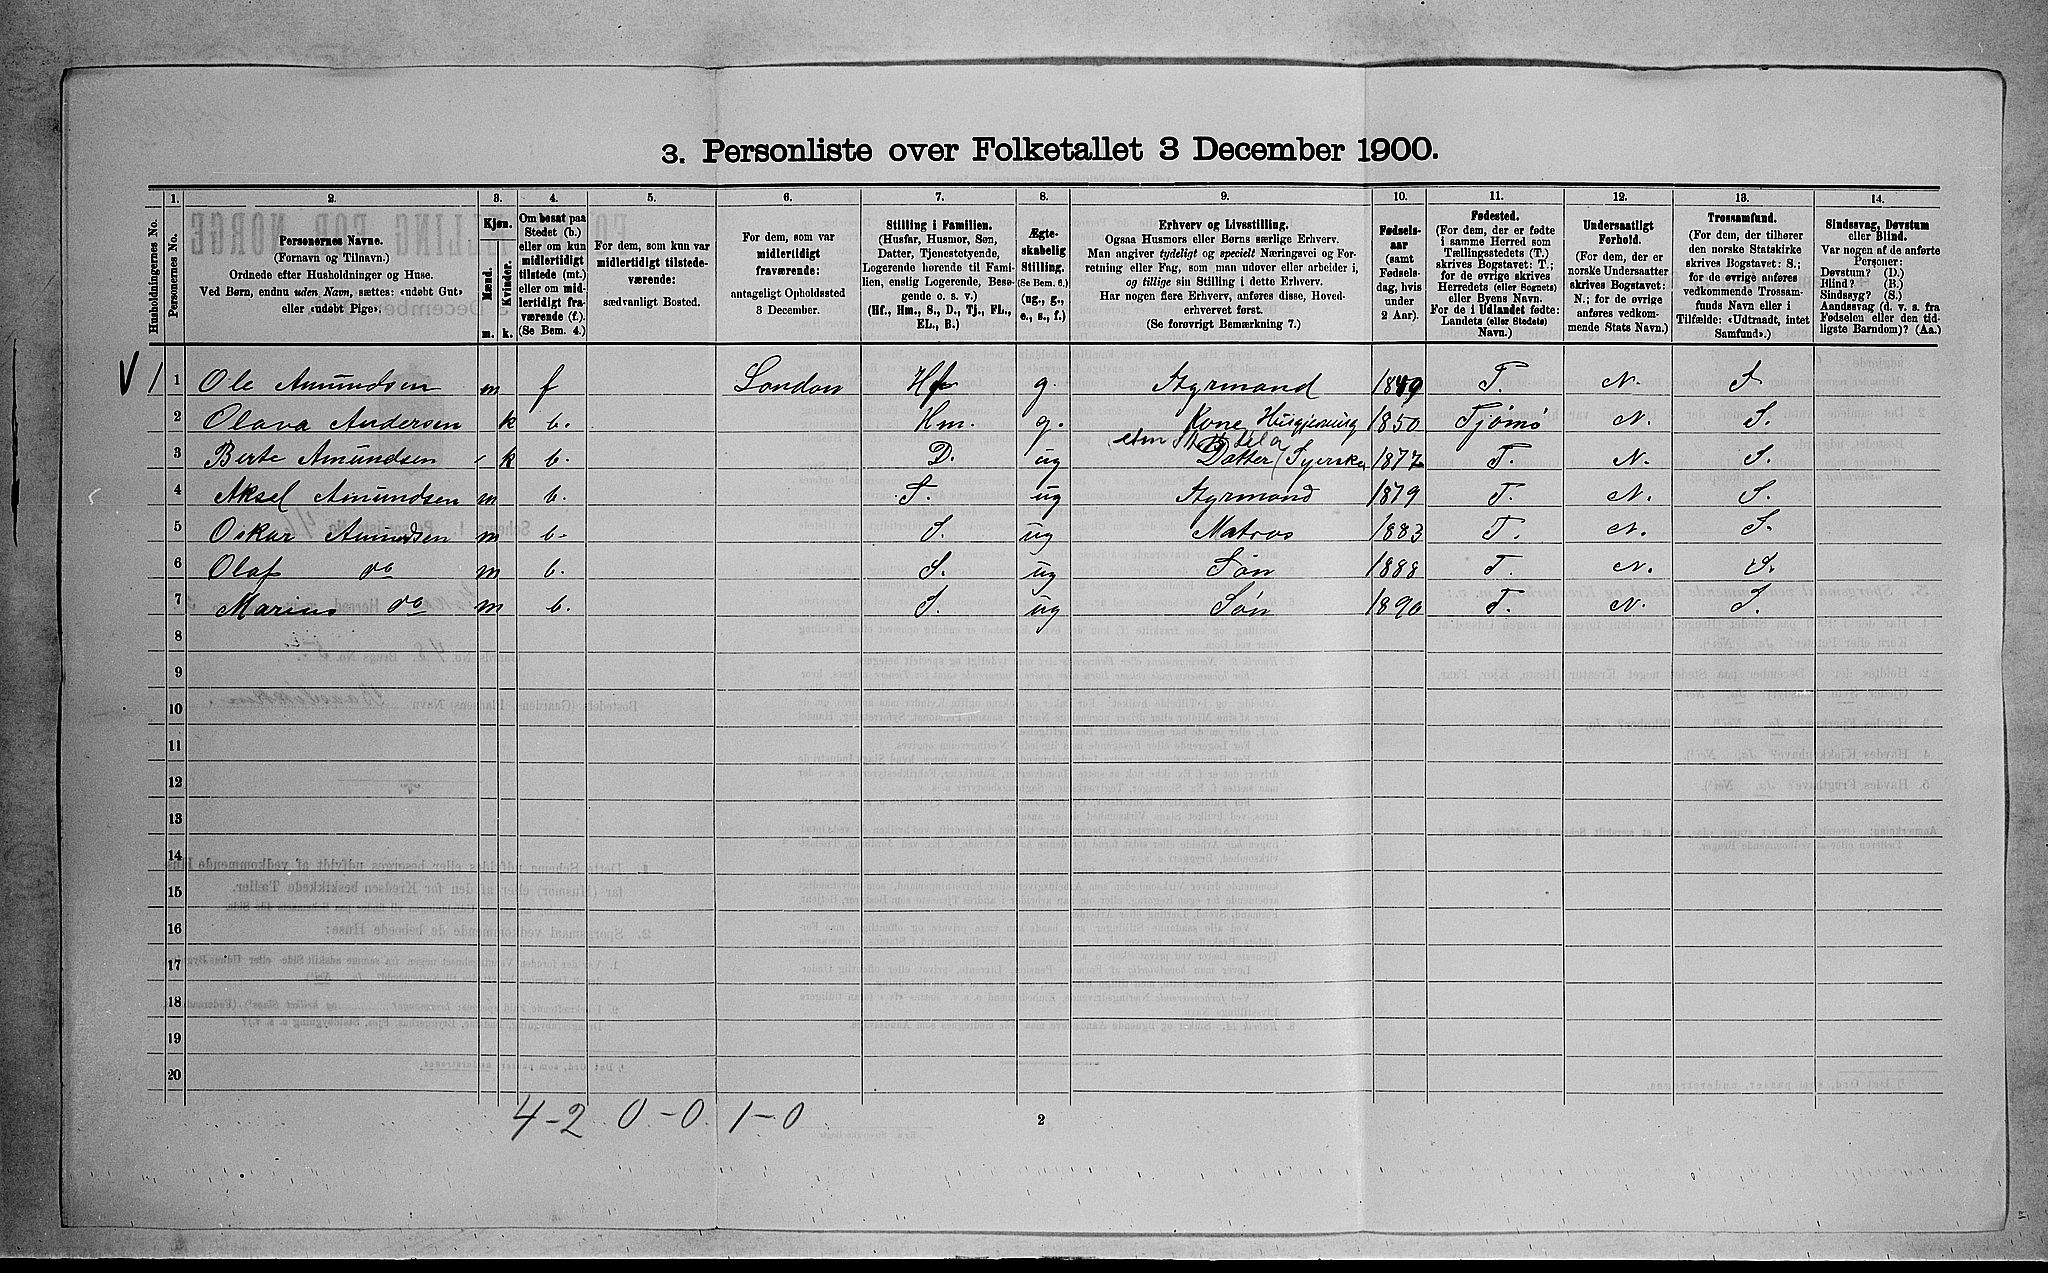 3. Personliste over Folketallet 3 December 1900.
1. 2. 3. 4. 5. 6. 7. 8. 9. 10. 11. 12. 13. 14.
Husholdningernes No.
Personernes No.
Personernes Navne.
(Fornavn og Tilnavn.)
Ordnede efter Husholdninger og Huse.
Ved Børn, endnu uden Navn, sættes: «udøbt Gut»
eller «udøbt Pige».
Kjøn.
Mænd.
Kvinder.
m. k.
Om bosat paa
Stedet (b.)
eller om kun
midlertidigt
tilstede (mt.)
eller om mid-
lertidigt fra-
værende (f.)
(Se Bem. 4.)
For dem, som kun var
midlertidigt tilstede-
værende:
sædvanligt Bosted.
For dem, som var
midlertidigt
fraværende:
antageligt Opholdssted
3 December.
Stilling i Familien.
(Husfar, Husmor, Søn,
Datter, Tjenestetyende,
Logerende hørende til Fami-
lien, enslig Logerende, Besø-
gende o. s. v.)
(Hf., Hm., S., D., Tj., FL.,
EL., B.)
Ægte-
skabelig
Stilling.
(Se Bem. 6.)
(ug., g.,
e., s., f.)
Erhverv og Livsstilling.
Ogsaa Husmors eller Børns særlige Erhverv.
Man angiver tydeligt og specielt Næringsvei og For-
retning eller Fag, som man udøver eller arbeider i,
og tillige sin Stilling i dette Erhverv.
Har nogen flere Erhverv, anføres disse, Hoved-
erhvervet først.
(Se forøvrigt Bemærkning 7.)
Fødsels-
aar
(samt
Fødsels-
dag, hvis
under
2 Aar).
Fødested.
(For dem, der er fødte
i samme Herred som
Tællingsstedets (T.)
skrives Bogstavet: T.;
for de øvrige skrives
Herredets (eller Sognets)
eller Byens Navn.
For de i Udlandet fødte:
Landets (eller Stedets)
Navn.)
Undersaatligt
Forhold.
(For dem, der er
norske Undersaatter
skrives Bogstavet:
N.; for de øvrige
anføres vedkom-
mende Stats Navn.)
Trossamfund.
(For dem, der tilhører
den norske Statskirke
skrives Bogstavet: S.;
for de øvrige anføres
vedkommende Trossam-
funds Navn eller i
Tilfælde: «Udtraadt, intet
Samfund».)
Sindssvag, Døvstum
eller Blind.
Var nogen af de anførte
Personer:
Døvstum? (D.)
Blind? (B.)
Sindssyg? (S.)
Aandssvag (d. v. s. fra
Fødselen eller den tid-
ligste Barndom)? (Aa.)
V 1 1 Ole Amundsen m f London Hf g. Styrmand 1849 T. N. S
2 Olava Andersen k b. Hm. g. Kone Husgjerning 1850 Tjømø N. S.
3 Berte Amundsen k b. D. ug Datter Syerske 1877 T. N. S.
4 Aksel Amundsen m b. S. ug Styrmand 1879 T. N. S.
5 Oskar Amundsen m b. S. ug Matros 1883 T. N. S.
6 Olaf do m b. S. ug Søn 1888 T. N. S.
7 Marius do m b. S. ug Søn 1890 T. N. S.
8
9
10
11
12
13
14
15
16
17
18
19
20
4-2 0-0 1-0
2